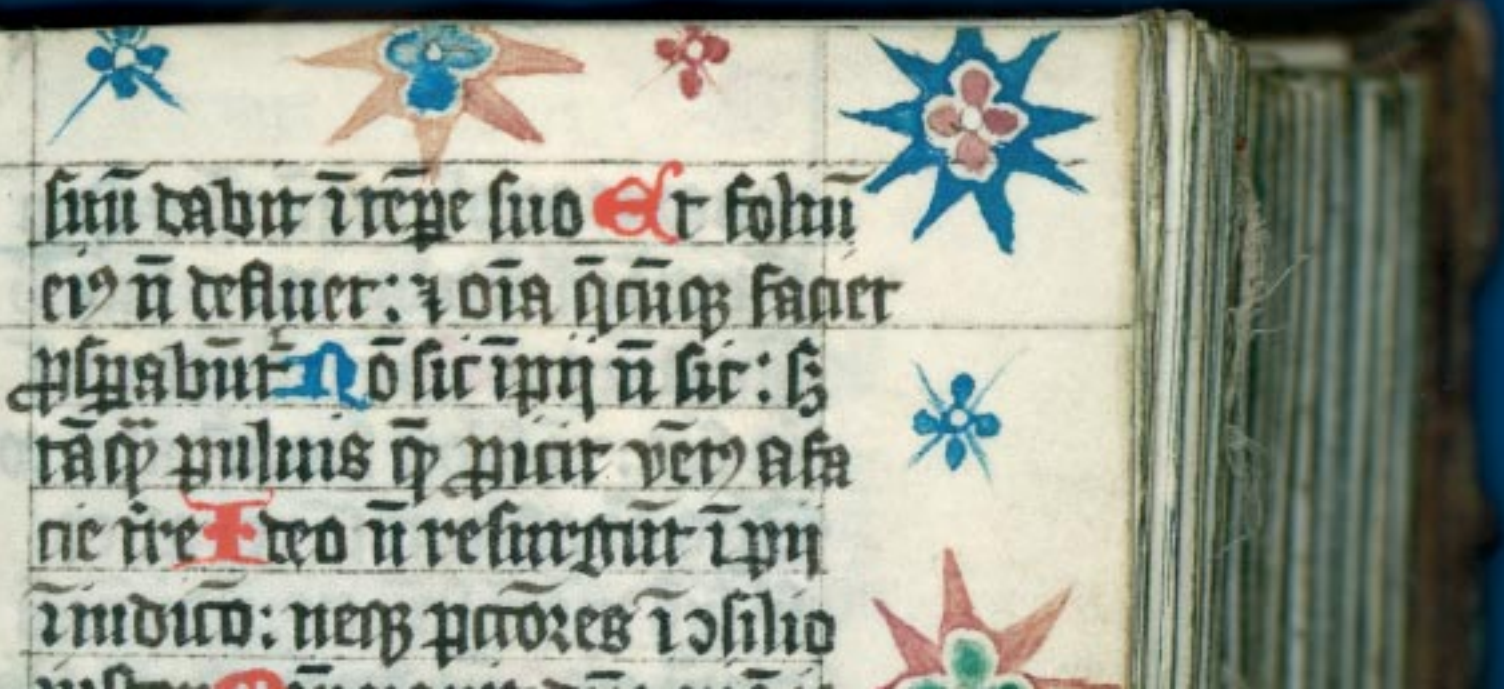 suū dabit ī tēpe suo Et foliū
eiꝰ n̄ defluet: ⁊ oīa q̄cūqꝫ faciet
ꝓsꝑabūt̄ Nō sic īpij n̄ sic: sꝫ
tāq̄ꝫ puluis q̄ ꝓicit vētꝰ a fa
cie t̄re Ideo n̄ resurgūt īpij
ī iudicio: neqꝫ pctōres ī ɔsilio
iustoꝝ